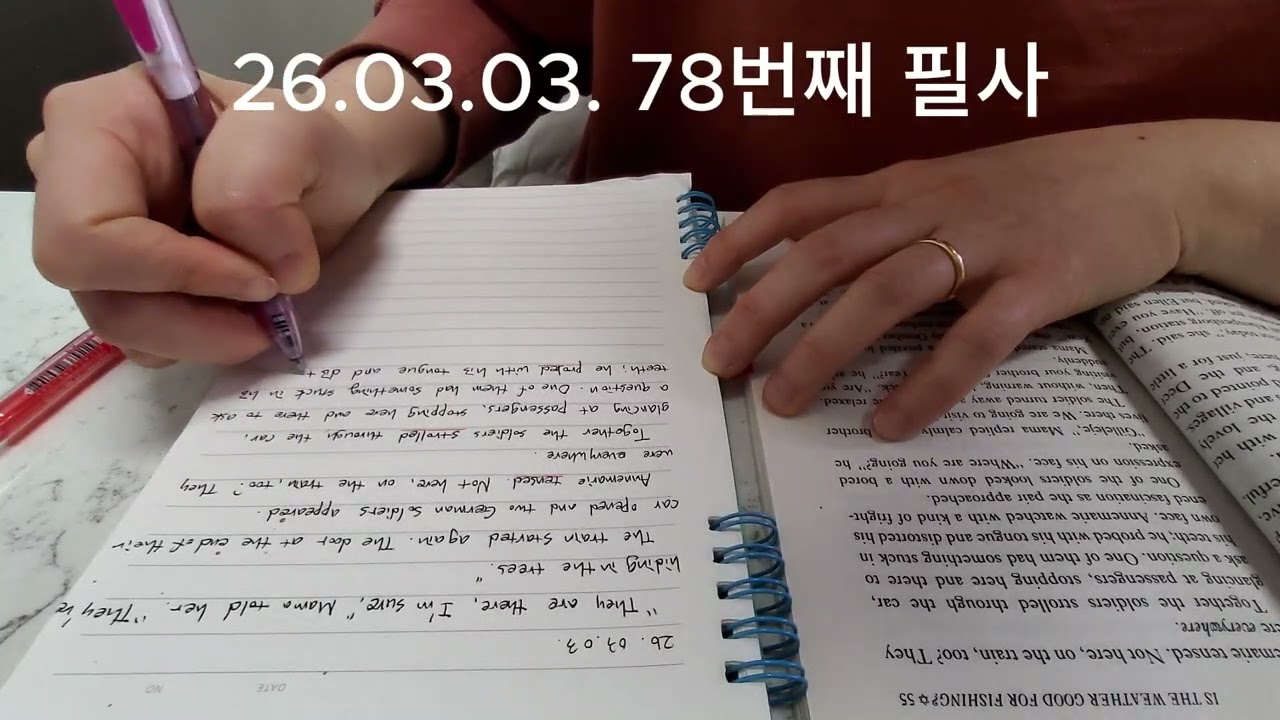 26.03.03. 78번째 필사
DATE NO
26. 03.03.
"They are there, I'm sure," Mama told her. "They're
hiding in the trees."
The train started again. The door at the end of their
car opened and two German soldiers appeared.
Annemarie tensed. Not here, on the train, too? They
were everywhere.
Together the soldiers strolled through the car,
glancing at passengers, stopping here and there to ask
a question. One of them had something stuck in his
teeth; he probed with his tongue and dist
IS THE WEATHER GOOD FOR FISHING? ✡ 55
emarie tensed. Not here, on the train, too? They
ere everywhere.
Together the soldiers strolled through the car,
glancing at passengers, stopping here and there to
ask a question. One of them had something stuck in
his teeth; he probed with his tongue and distorted his
own face. Annemarie watched with a kind of fright-
ened fascination as the pair approached.
One of the soldiers looked down with a bored
expression on his face. "Where are you going?" he
asked.
"Gilleleje," Mama replied calmly. brother
lives there. We are going to visit
The soldier turned away relaxed
Then, without warning, back. "Are
visiting your brother year?"
suddenly.
Mama stared a puzzled
October